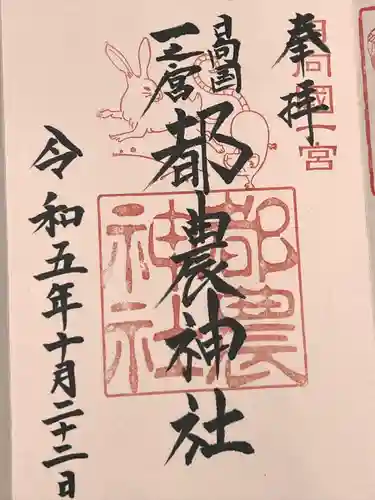 奉拝
日向國一宮
日向国
一之宮
都農神社
都農神社
令和五年十月二十二日